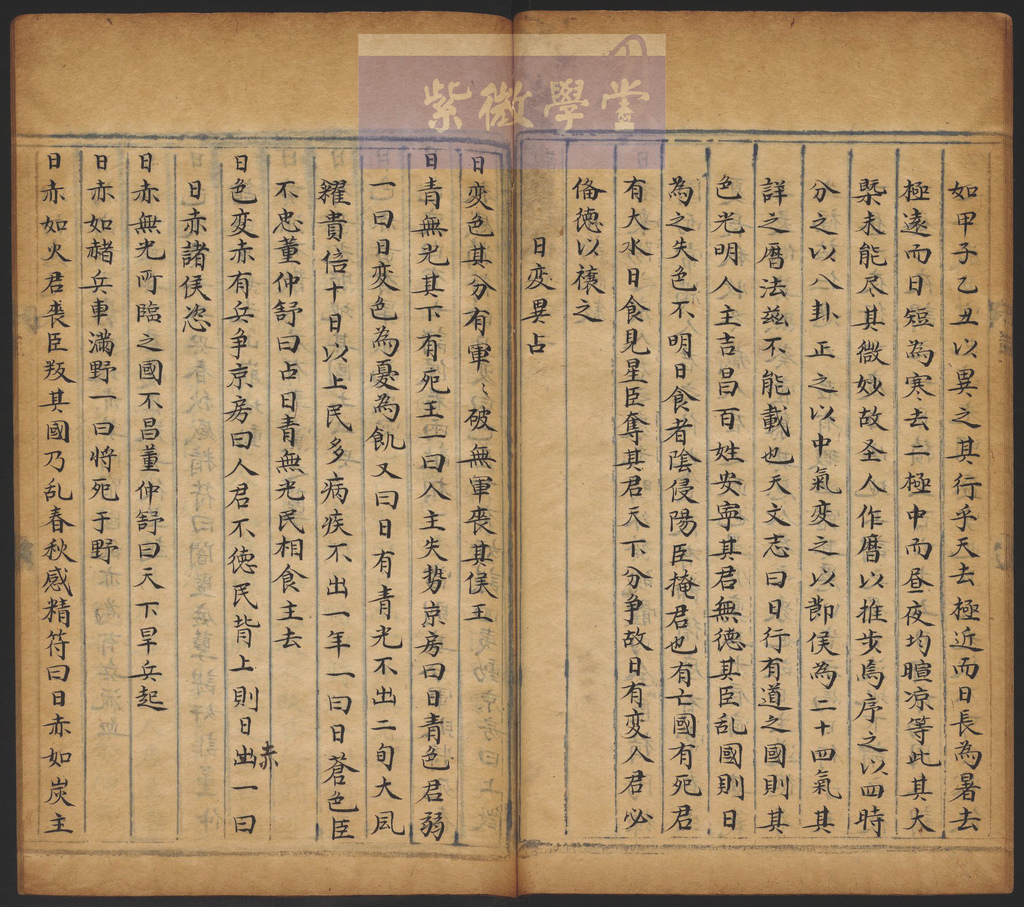 紫微學堂
如甲子乙丑以異之其行乎天去極近而日長為暑去
極遠而日短為寒去二極中而昼夜均暄凉等此其大
槩未能尽其微妙故圣人作曆以推步焉序之以四時
分之以八卦正之以中氣変之以節侯為二十四氣其
詳之曆法兹不能載也天文志曰日行有道之國則其
色光明人主吉昌百姓安寧其君無徳其臣乱國則日
為之失色不明日食者陰侵陽臣掩君也有亡國有死君
有大水日食見星臣奪其君天下分争故日有変人君必
俻徳以禳之
日変異占
日変色其分有軍〻破無軍喪其侯王
日青無光其下有死王一曰人主失势京房曰日青色君弱
一曰日変色為憂為飢又曰日有青光不出二旬大風
糴貴倍十日以上民多病疾不出一年一曰日蒼色臣
不忠董仲舒曰占日青無光民相食主去
日色変赤有兵争京房曰人君不徳民背上則日出赤一曰
日赤諸侯恣
日赤無光所臨之國不昌董仲舒曰天下旱兵起
日赤如赭兵車滿野一曰将死于野
日赤如火君喪臣叛其國乃乱春秋感精符曰日赤如炭主